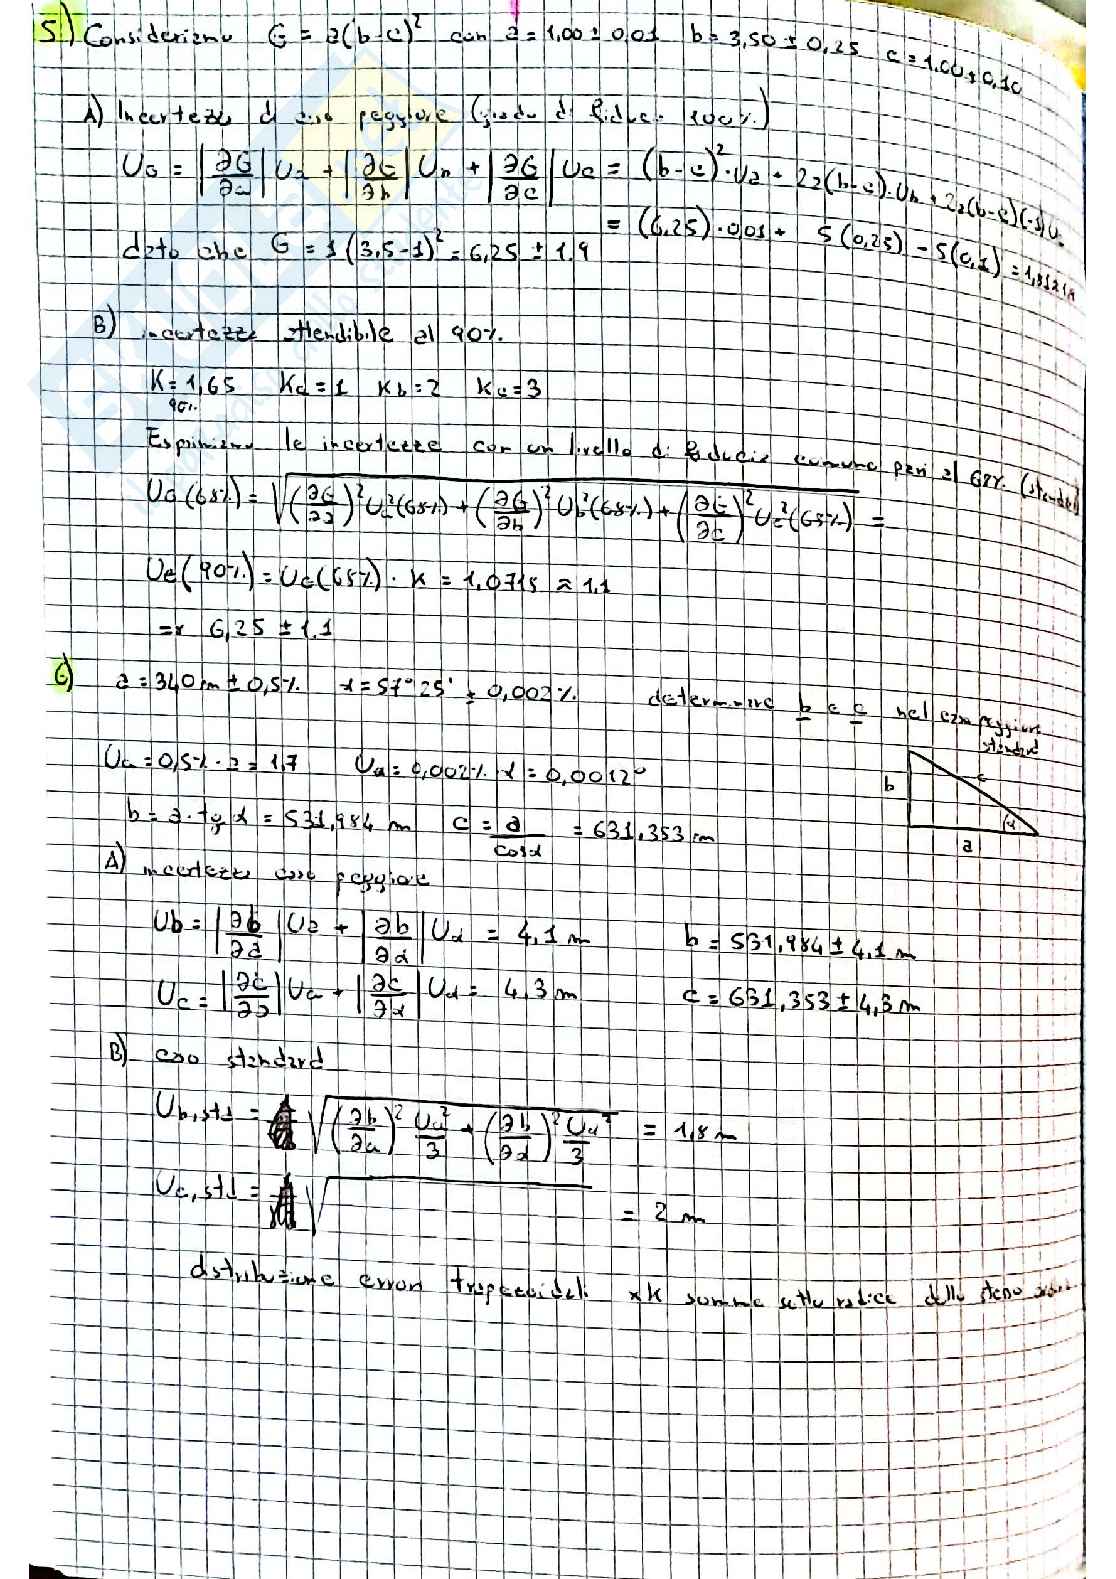 5.) Consideriamo G = a(b-c)² con a = 1,00 ± 0,01 b = 3,50 ± 0,25 c = 1.00 ± 0,10
A) Incertezza di caso peggiore (grado di fiducia 100%)
U_G = |∂G/∂a| U_a + |∂G/∂b| U_b + |∂G/∂c| U_c = (b-c)²·U_a + 2a(b-c)·U_b + 2a(b-c)(-1)U_c
= (6,25)·0,01 + 5(0,25) - 5(0,1) =
dato che G = 1(3,5-1)² = 6,25 ± 1.9
B) incertezza attendibile al 90%.
K_90% = 1,65 K_a = 1 K_b = 2 K_c = 3
Esprimiamo le incertezze con un livello di fiducia comune pari al 68% (standard)
U_G(68%) = √((∂G/∂a)² U_a²(68%) + (∂G/∂b)² U_b²(68%) + (∂G/∂c)² U_c²(68%)) =
U_G(90%) = U_G(68%) · K = 1,0715 ≈ 1,1
=> 6,25 ± 1.1
6) a = 340 m ± 0,5% α = 57° 25' ± 0,002% determinare b e c nel caso peggiore
standard
U_a = 0,5% · a = 1,7 U_α = 0,002% α = 0,0012°
b c α a
b = a · tg α = 531,984 m c = a/cosα = 631,353 m
A) incertezza caso peggiore
U_b = |∂b/∂a| U_a + |∂b/∂α| U_α = 4,1 m b = 531,984 ± 4,1 m
U_c = |∂c/∂a| U_a + |∂c/∂α| U_α = 4,3 m c = 631,353 ± 4,3 m
B) caso standard
U_b,std = √((∂b/∂a)² U_a²/3 + (∂b/∂α)² U_α²/3) = 1,8 m
U_c,std = √ = 2 m
distribuzione errori trapezoidali xk somme sotto radice dello stesso